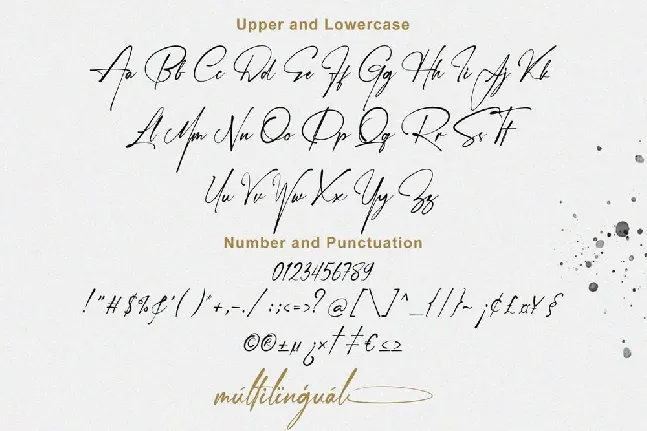 Upper and Lowercase
Aa Bb Cc Dd Ee Ff Gg Hh Ii Jj Kk
Ll Mm Nn Oo Pp Qq Rr Ss Tt
Uu Vv Ww Xx Yy Zz
Number and Punctuation
0123456789
!"#$%&'()*+,-./:;<=>?@[\]^_{|}~¡¢£¤¥§
©®±µ¿×†‡€≤≥
múltilïngúál